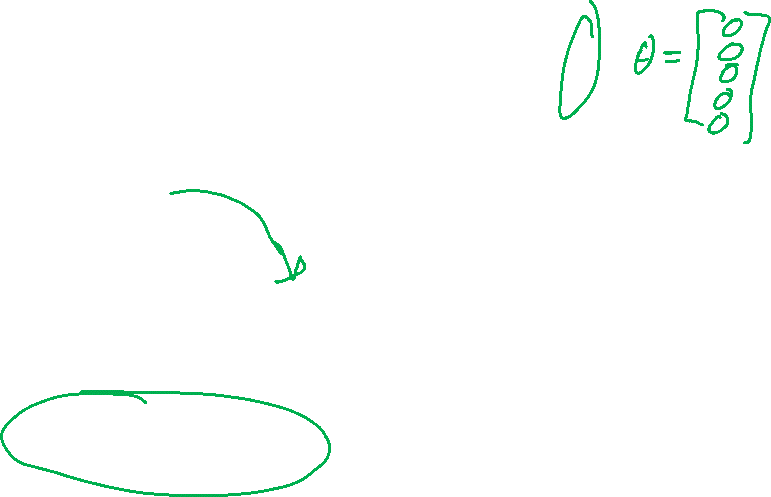 θ = [0
0
0
0
0]